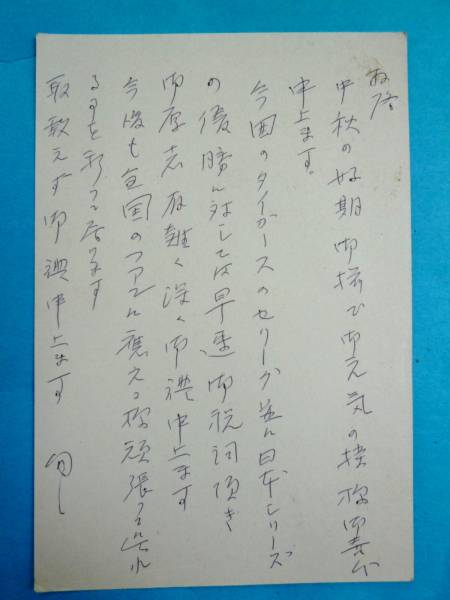 拝啓
中秋の好期 皆様で御元気の様御喜び
申上ます。
今回のタイガースのセリーグ並に日本シリーズ
の優勝に対しては早速御祝詞頂き
御厚志有難く深く御禮申上ます
今後も全国のファンに應える様頑張
るを祈つて居ります
取敢えず御禮申上ます